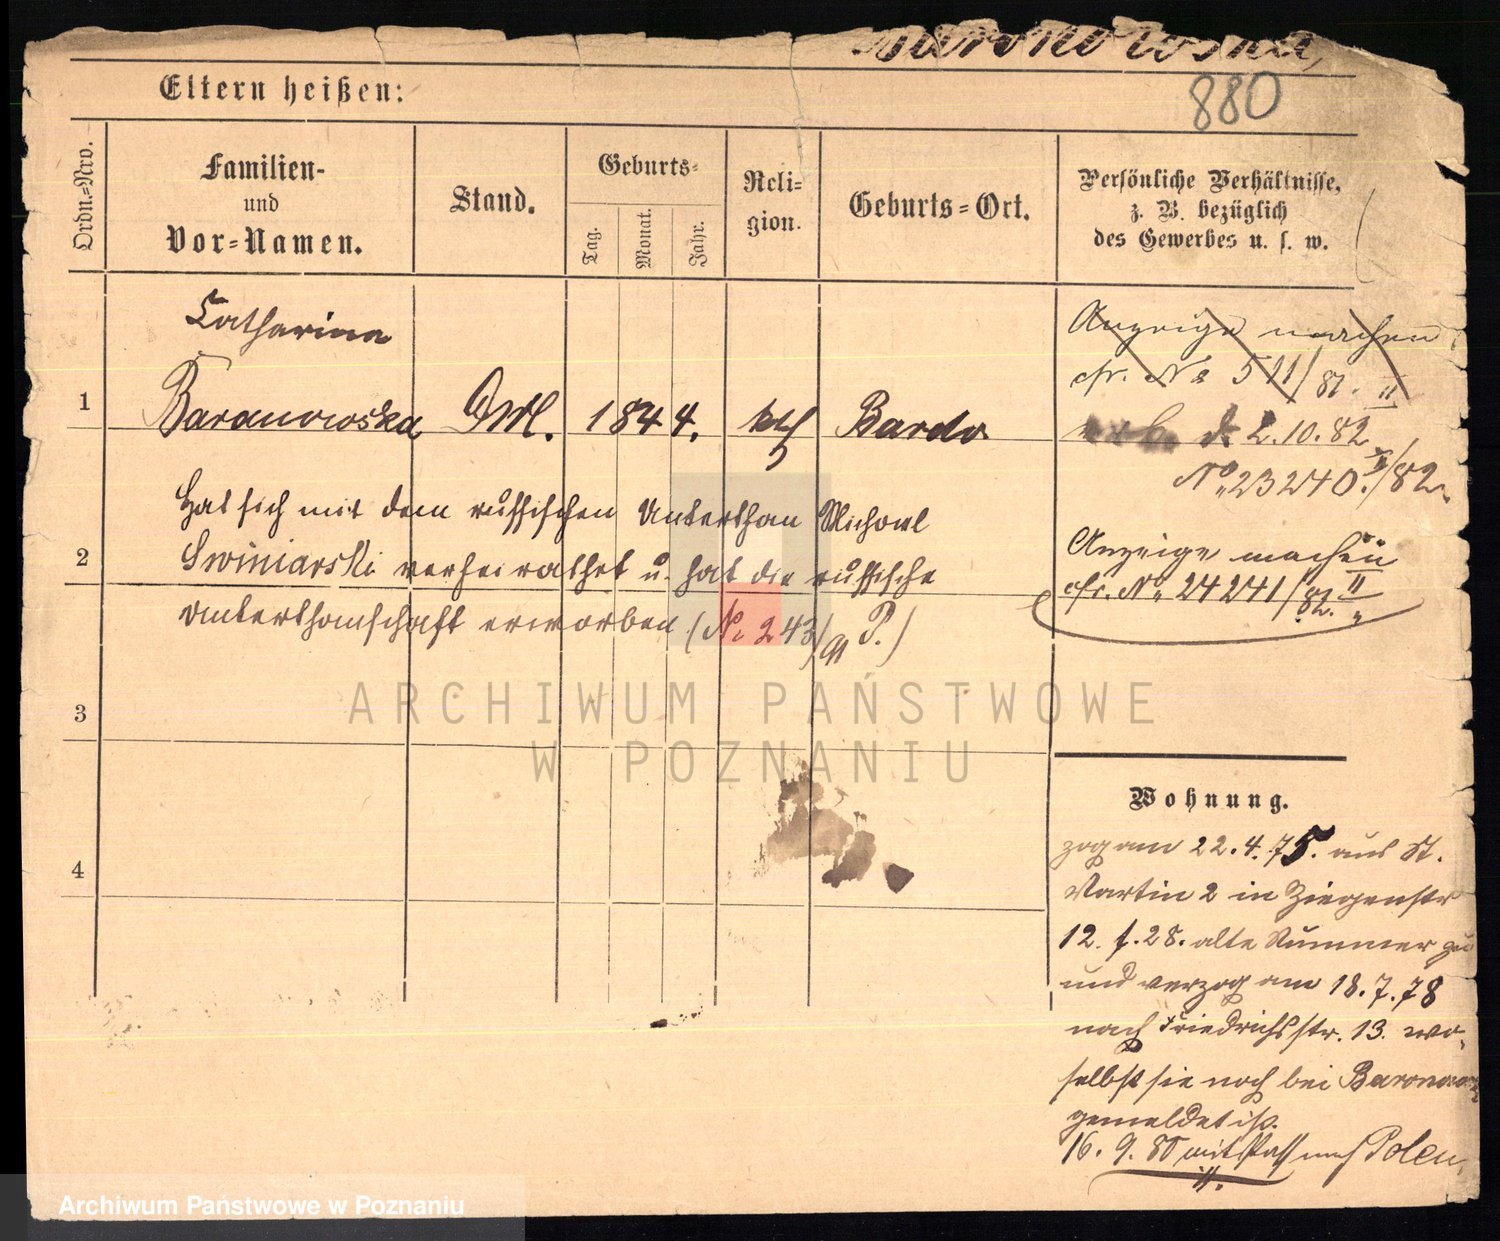 Baronowska,
880
Eltern heißen:
Ordn.=Nro.
Familien-
und
Vor=Namen.
Stand.
Geburts=
Tag.
Monat.
Jahr.
Reli=
gion.
Geburts=Ort.
Persönliche Verhältnisse,
z. B. bezüglich
des Gewerbes u. s. w.
1
Catharina
Baranowska
1844.
kth
Bardo
Anzeige machen
cfr. No 511/82. II
d. 2.10.82
No 23240 II/82.
2
Hat sich mit dem russischen Unterthan Michael
Swiniarski verheirathet u. hat die russische
Unterthanschaft erworben (No 243/91 P.)
Anzeige machen
cfr. No 24241/82. II
3
4
Wohnung.
zog am 22.4.75. aus St.
Martin 2 in Ziegenstr
12. f. 28. alte Nummer zu
und verzog am 18.7.78
nach Friedrichsstr. 13. wo-
selbst sie noch bei Baronows
gemeldet ist.
16. 9. 80 mit Paß nach Polen
ARCHIWUM PAŃSTWOWE
W POZNANIU
Archiwum Państwowe w Poznaniu